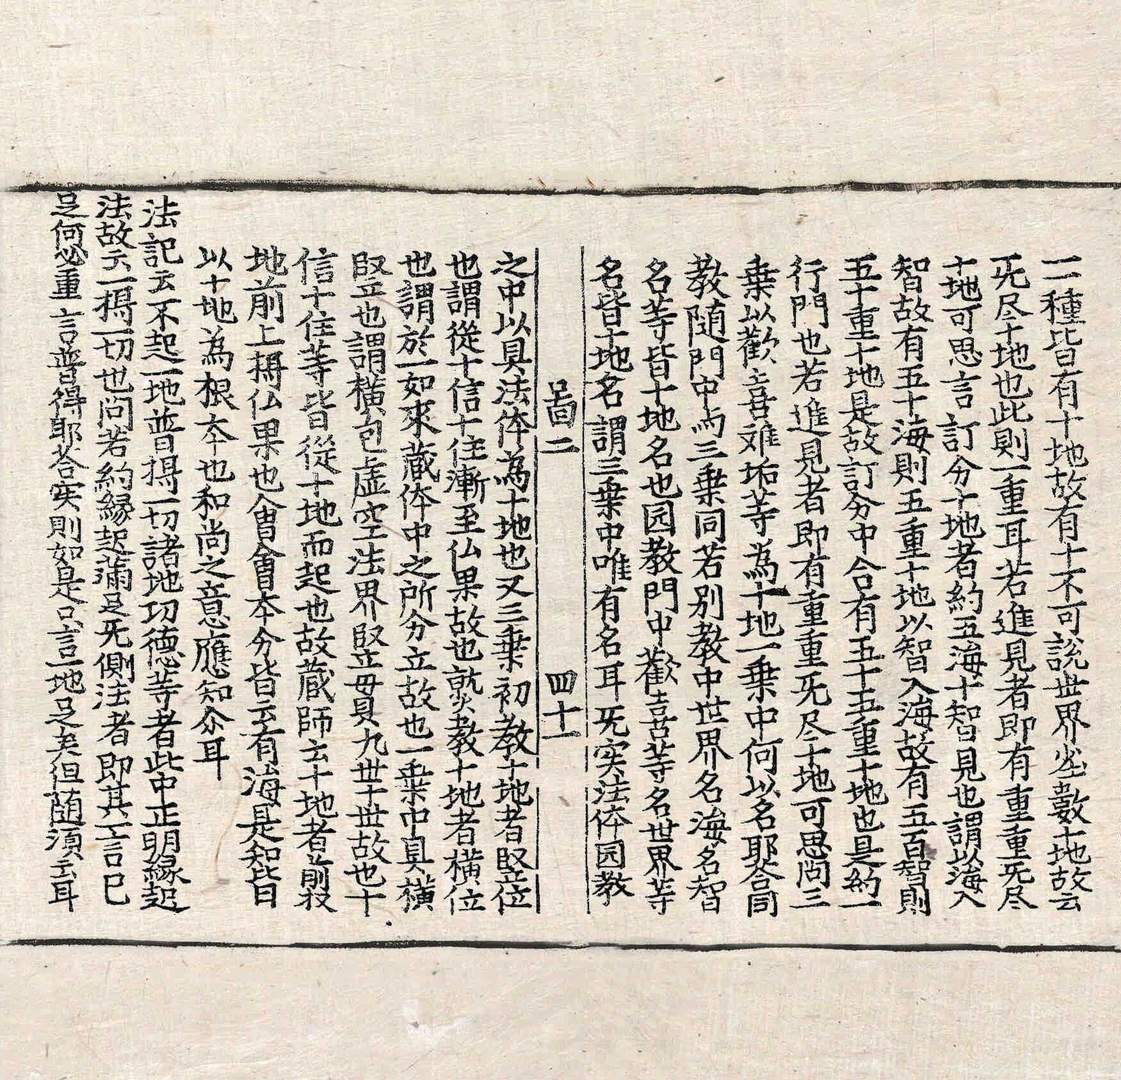 一種皆有十地故有十不可說世界尘數十地故云
旡尽十地也此則一重耳若進見者即有重重旡尽
十地可思言訂分十地者約五海十智見也謂以海入
智故有五十海則五重十地以智入海故有五百智則
五十重十地是故訂分中合有五十五重十地也是約一
行門也若進見者即有重重旡尽十地可思問三
乗以歡喜难垢等為十地一乗中何以名耶答同
教随門中与三乗同若别教中世界名海名智
名等皆十地名也园教門中歡喜等名世界等
名皆十地名謂三乗中唯有名耳旡实法体园教
四十一
之中以具法体為十地也又三乗初教十地者竪位
也謂從十信十住漸至仏果故也熟教十地者横位
也謂於一如來蔵体中之所分立故也一乗中具横
竪也謂横包虚空法界竪毌貫九世十世故也十
信十住等皆從十地而起也故蔵師云十地者前
地前上摂仏果也會會本分皆云有海是知皆
以十地為根夲也和尚之意應知尒耳
法記云不起一地普摂一切諸地功德等者此中正明縁起
法故云一摂一切也问若約縁起滿足旡側法者即其言已
足何必重言普得耶荅实則如是只言一地足矣但随须云耳